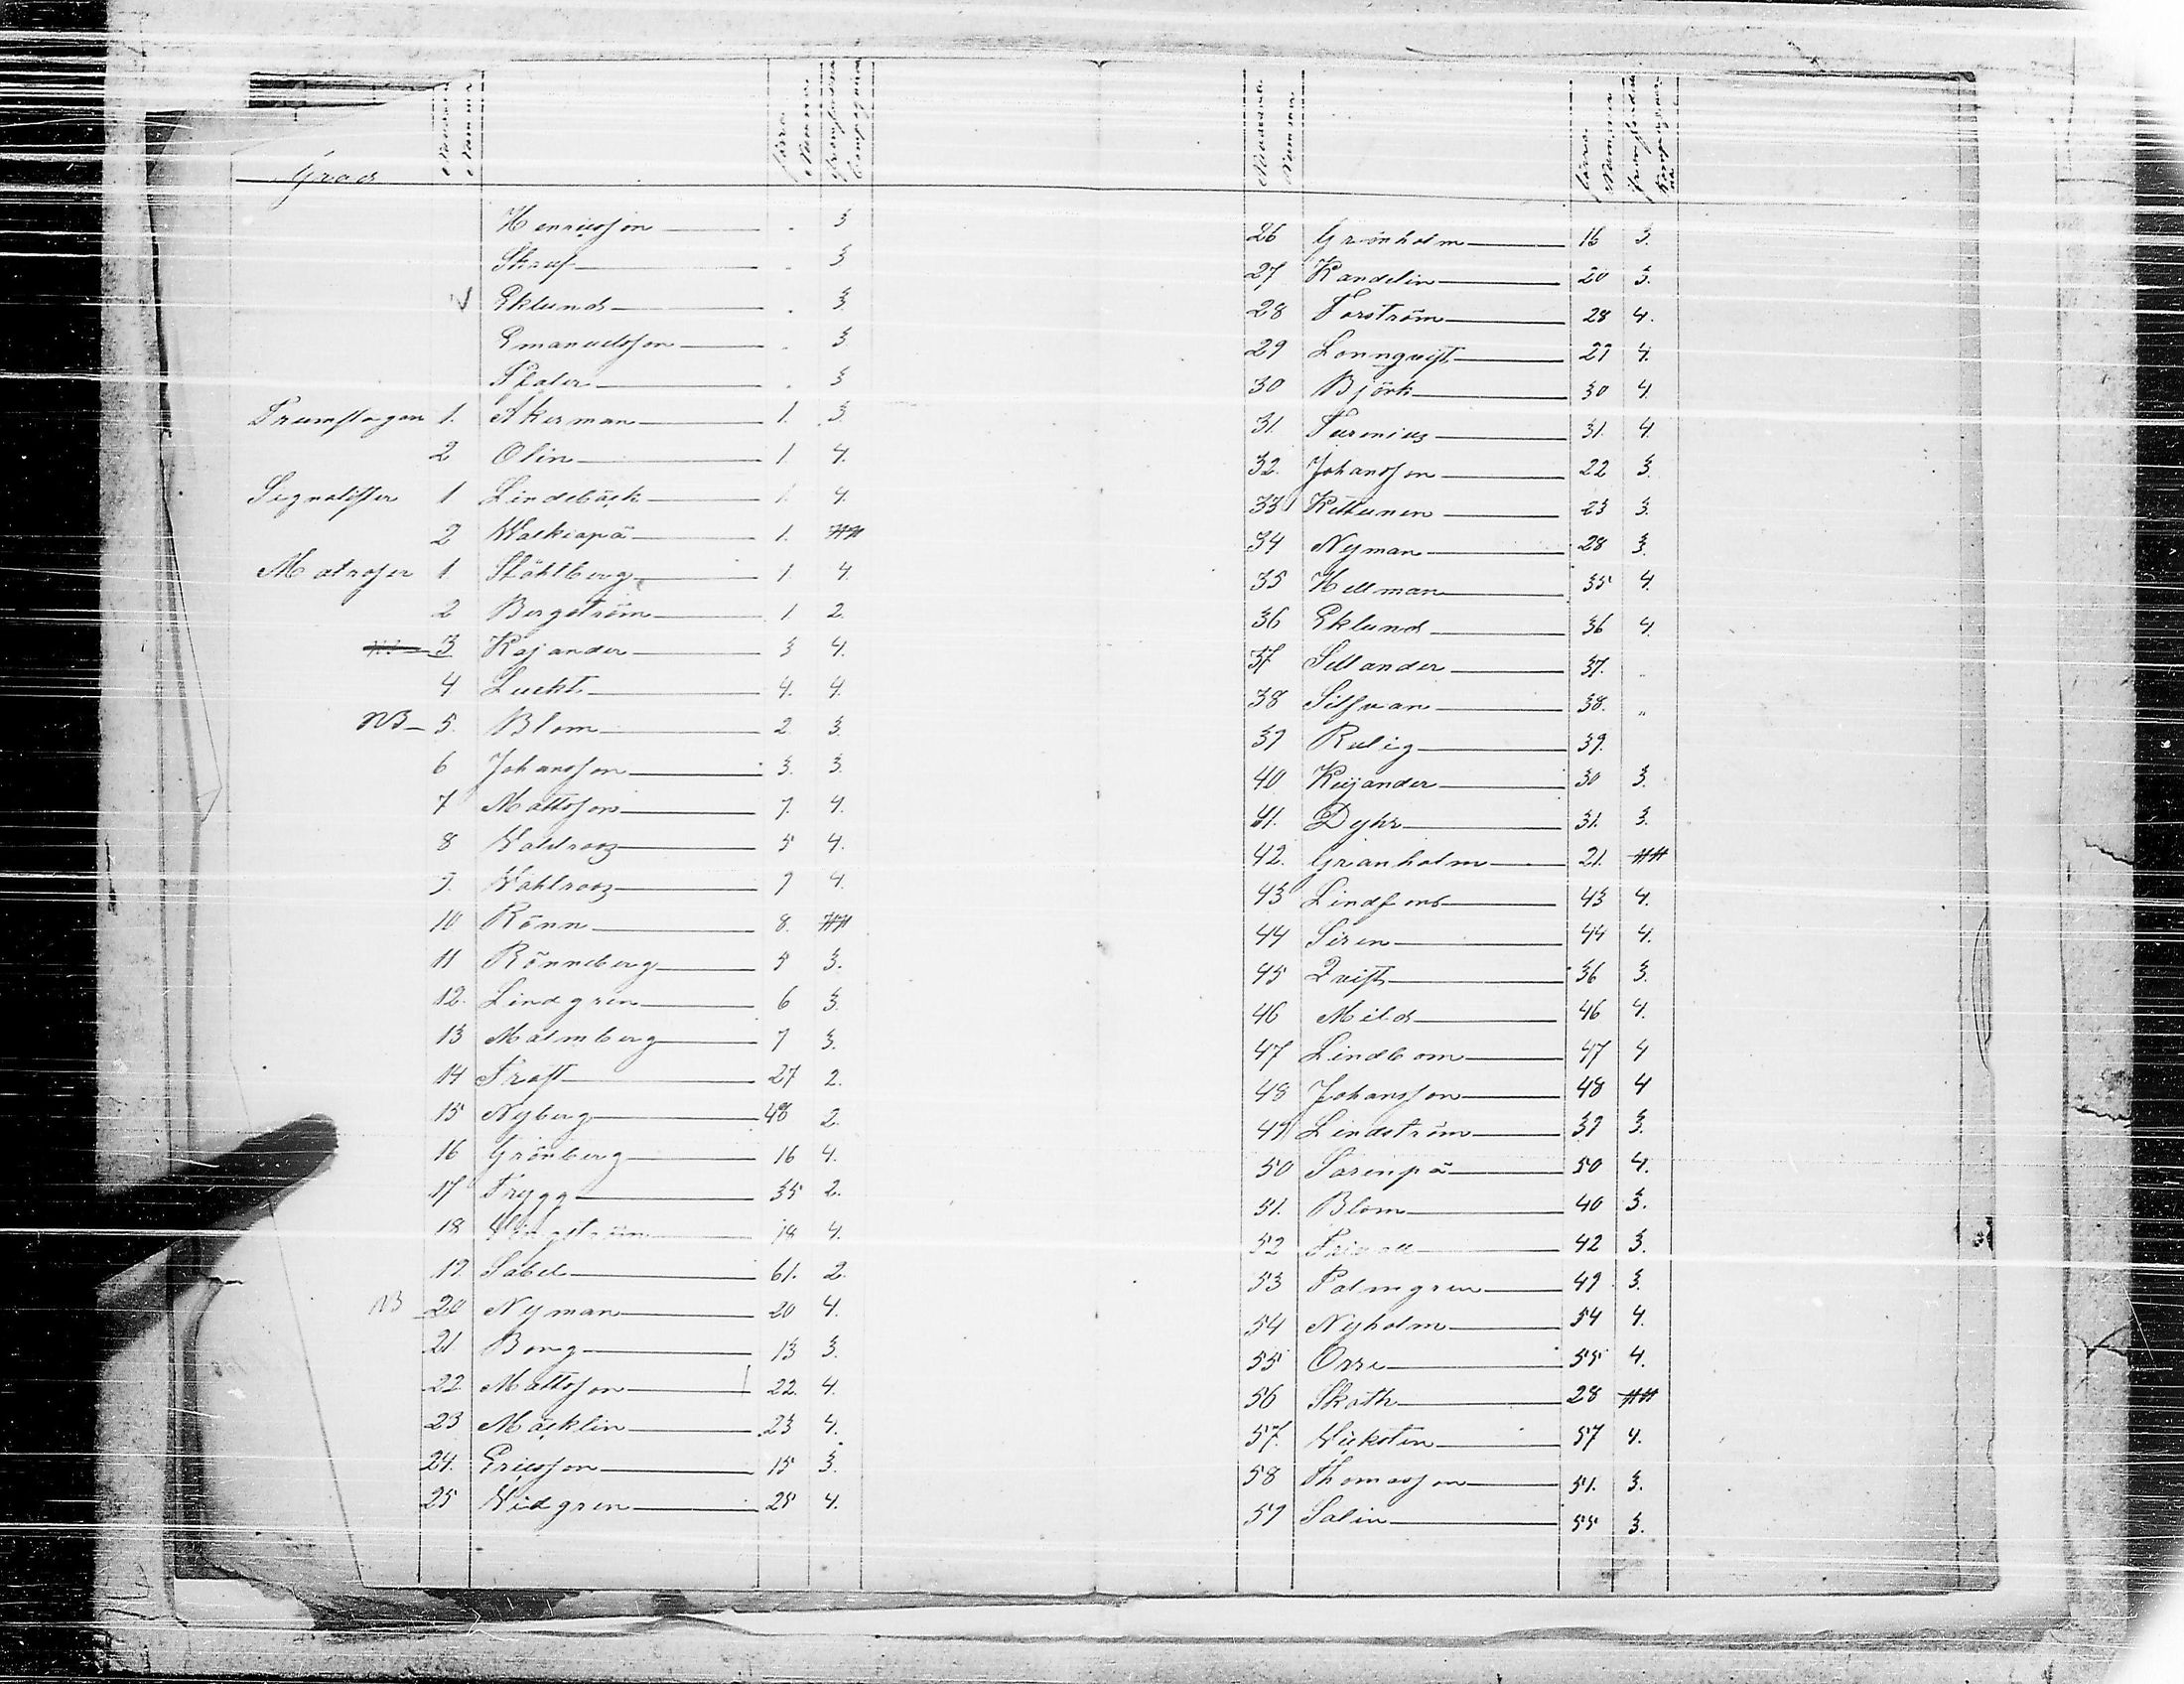 Grad Nuvarande Nummer Förra Nummer Compagnierna
Henricsson . 3
. 3
Eklund . 3.
Emanuelsson . 3
. 3
Trumslagare 1. Åkerman 1. 3.
2 Olin 1. 4.
Signalister 1 Lindebäck 1. 4.
2 1.
Matroser 1. Ståhlberg 1. 4.
2 Bergström 1. 2.
3 Kajander 3 4.
4 Luckt 4. 4.
NB 5. Blom 2 3.
6 Johansson 3. 3.
7 Mattsson 7. 4.
8 5 4.
9. Wahlroos 9 4.
10 Rönn 8.
11 Rönneberg 5 3.
12. Lindgren 6 3.
13 Malmberg 7 3.
14 Trast 27 2.
15 Nyberg 48 2.
16 Grönberg 16 4.
17 Trygg 35 2.
18 18 4.
19. Sabel 61. 2.
NB 20 Nyman 20 4.
21 Borg 13 3.
22 Mattsson 22. 4.
23 Mäcklin 23 4.
24. Ericsson 15 3.
25 Widgren 25 4.
Nuvarande Nummer Förra Nummer
26 Grönholm 16 3.
27 Kandelin 20 3.
28 Forström 28 4.
29 Lönnqvist 29 4.
30 Björk 30 4.
31. Turenius 31. 4.
32. Johansson 22 3.
33 Kettunen 23 3.
34 Nyman 28 3.
35 Hellman 35 4.
36 Eklund 36 4.
37. Sillander 37. „
38 Silfvan 38. „
39 Rulig 39.
40 Kujander 30 3.
41. Dyhr 31. 3.
42. Granholm 21.
43 Lindfors 43 4.
44 Siren 44 4.
45 Qvist 36 3.
46 Mild 46 4.
47 Lindbom 47 4
48 Johansson 48 4
49 Lindström 39 3.
50 Sarenpä 50 4.
51. Blom 40 3.
52 42 3.
53 Palmgren 49 3.
54 Nyholm 54 4.
55 Orre 55 4.
56 Skath 28
57. Wicksten 57 4.
58 Thomasson 51. 3.
59 Salin 55 3.